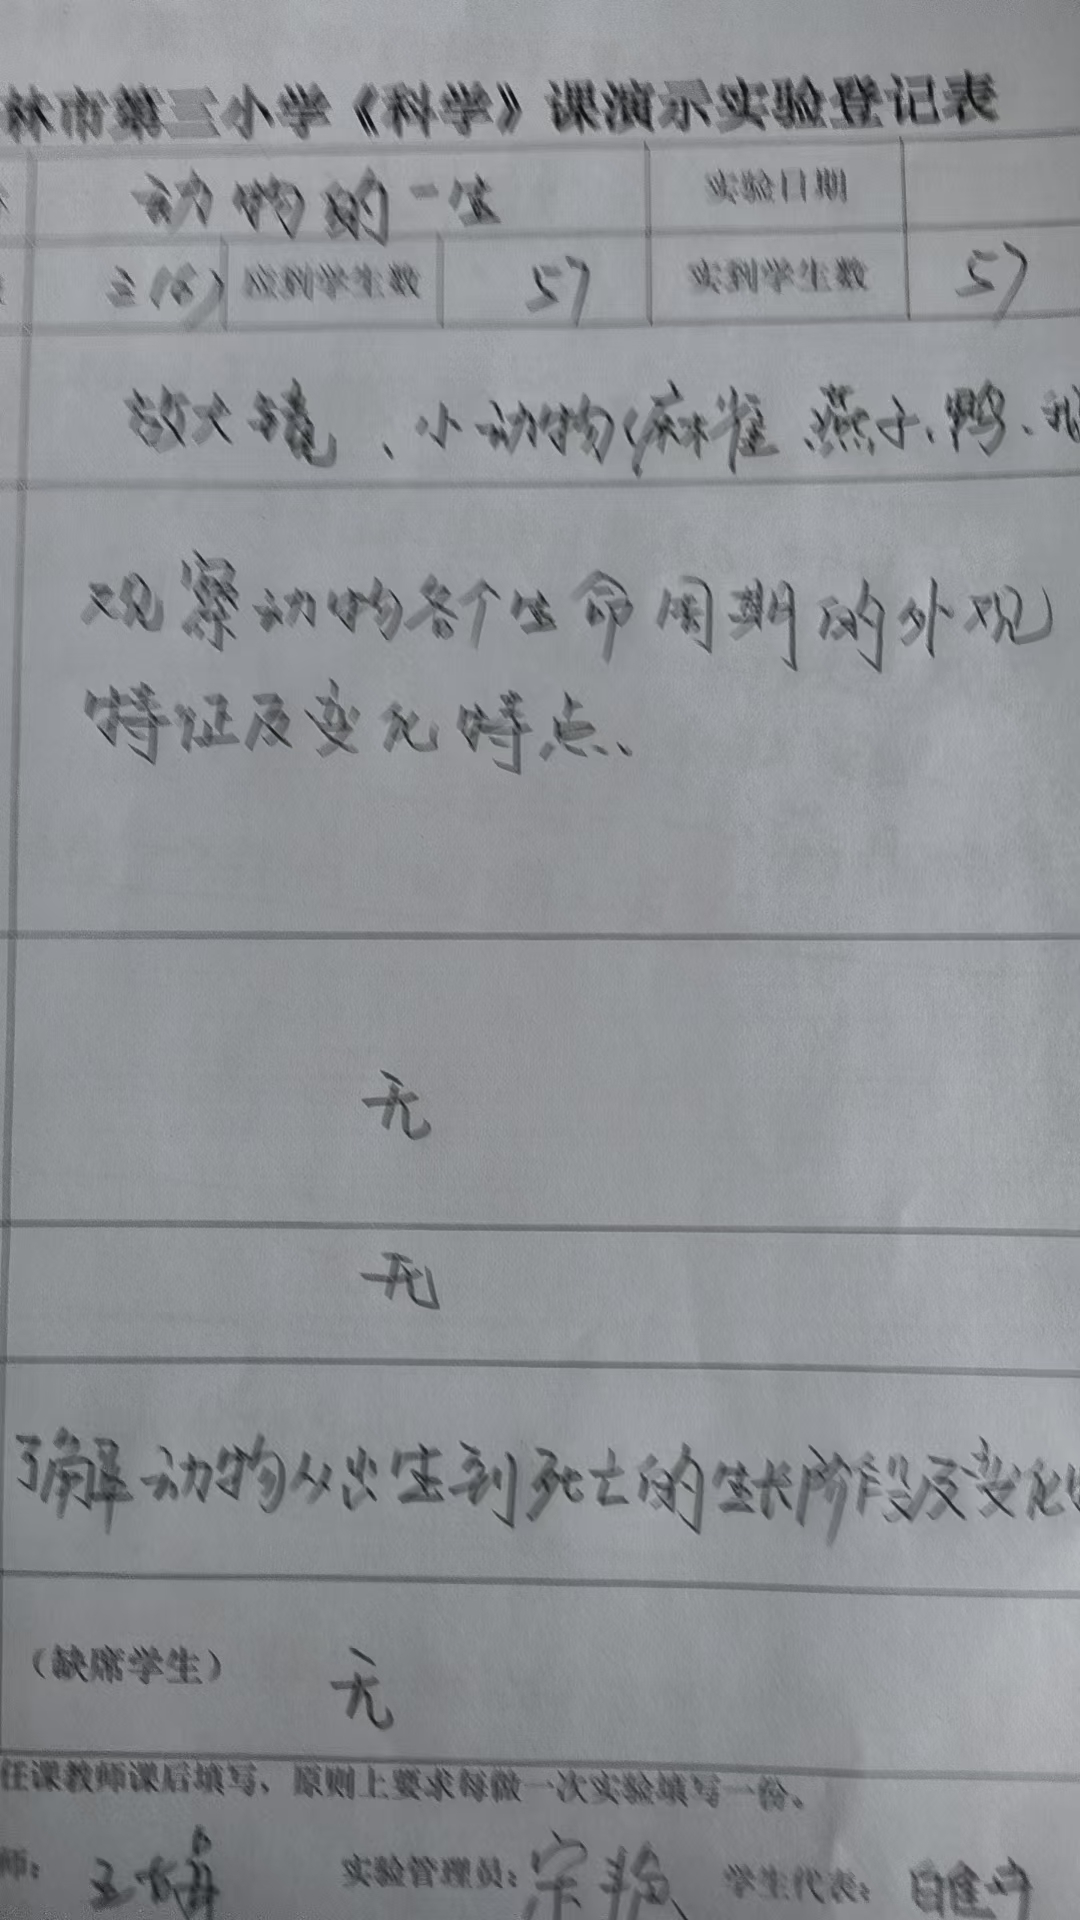 林市第三小学《科学》课演示实验登记表
动物的一生 实验日期
三(6) 应到学生数 57 实到学生数 57
放大镜、小动物(麻雀、燕子、鸭、
观察动物各个生命周期的外观
特征及变化特点、
无
无
了解动物从出生到死亡的生长阶段及变化
(缺席学生) 无
任课教师课后填写,原则上要求每做一次实验填写一份。
师: 实验管理员: 学生代表: